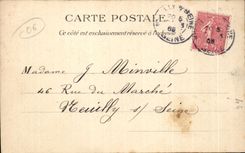 -06
CARTE POSTALE
Ce côté est exclusivement réservé à l'adresse
SEINE
Madame J Minville
46 Rue du Marché
Neuilly s/ Seine